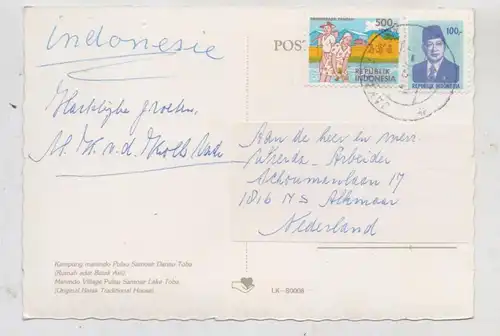 Indonesie
POST
500
REPUBLIK
INDONESIA
100,-
REPUBLIK INDONESIA
Hartelijke groeten,
Aan de heer en mevr
Arbeider
Schoumanlaan 17
1816 NS Alkmaar
Nederland
Kampung marendo Pulau Samosir Danau Toba
(Rumah adat Batak Asli)
Marendo Village Pulau Samosir Lake Toba
(Original Batak Traditional House)